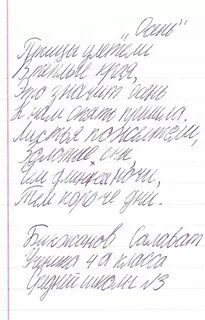 „Осень"
Птицы улетели
В теплые края,
Это значит осень
К нам опять пришла.
Листья пожелтели,
Золотые они,
Чем длинна ночи,
Тем короче дни.
Бижанов Салават
Ученик 4 а класса
Средней школы №3